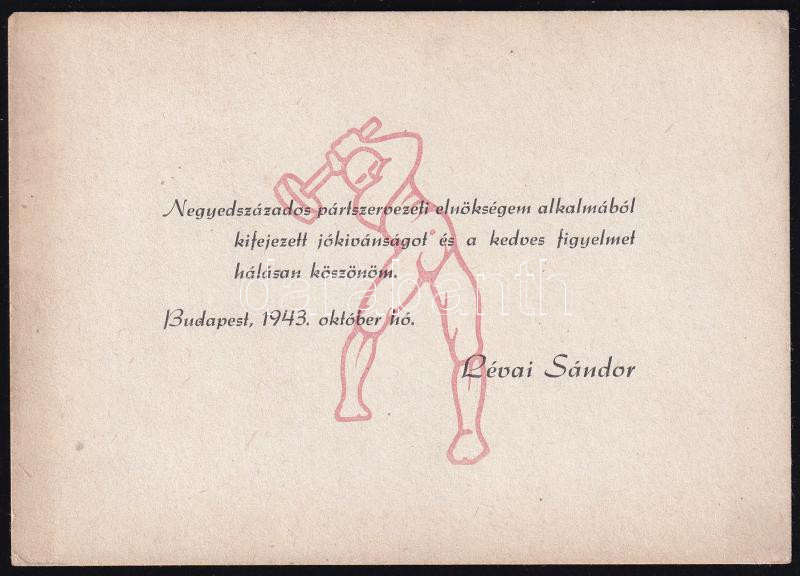 Negyedszázados pártszervezeti elnökségem alkalmából
kifejezett jókivánságot és a kedves figyelmet
hálásan köszönöm.
darabanth
Budapest, 1943. október hó.
Lévai Sándor